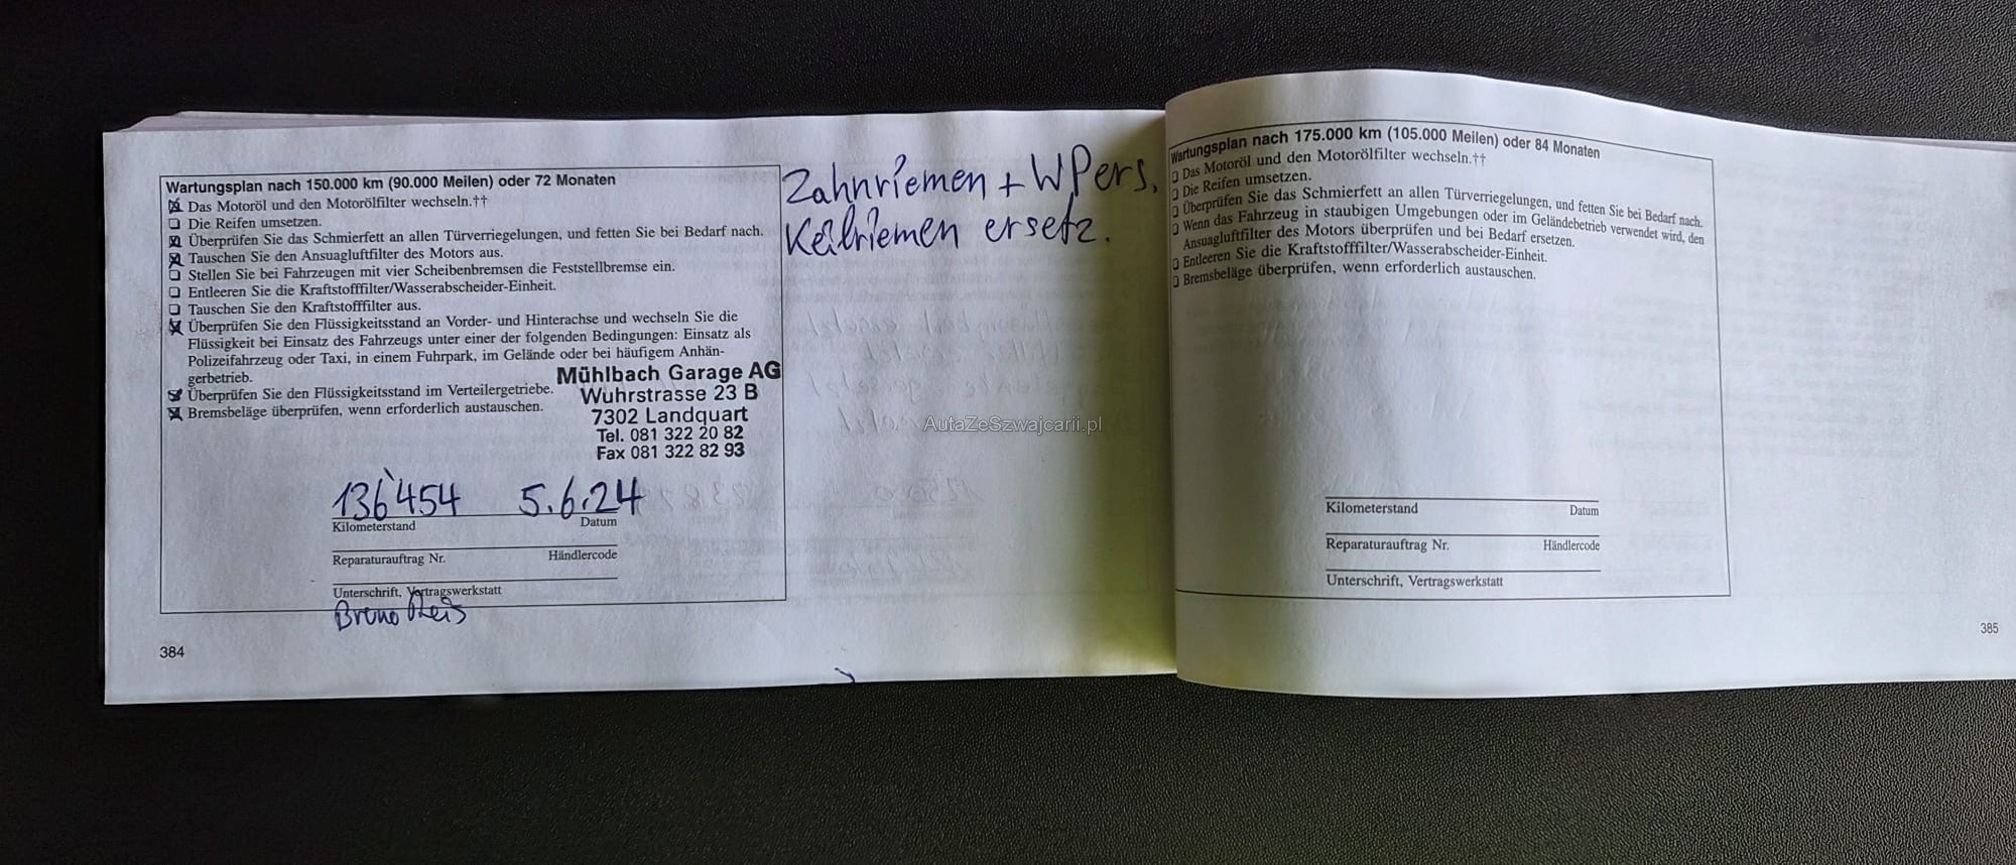 Wartungsplan nach 150.000 km (90.000 Meilen) oder 72 Monaten
Das Motoröl und den Motorölfilter wechseln.††
Die Reifen umsetzen.
Überprüfen Sie das Schmierfett an allen Türverriegelungen, und fetten Sie bei Bedarf nach.
Tauschen Sie den Ansuagluftfilter des Motors aus.
Stellen Sie bei Fahrzeugen mit vier Scheibenbremsen die Feststellbremse ein.
Entleeren Sie die Kraftstofffilter/Wasserabscheider-Einheit.
Tauschen Sie den Kraftstofffilter aus.
Überprüfen Sie den Flüssigkeitsstand an Vorder- und Hinterachse und wechseln Sie die
Flüssigkeit bei Einsatz des Fahrzeugs unter einer der folgenden Bedingungen: Einsatz als
Polizeifahrzeug oder Taxi, in einem Fuhrpark, im Gelände oder bei häufigem Anhän-
gerbetrieb.
Überprüfen Sie den Flüssigkeitsstand im Verteilergetriebe.
Bremsbeläge überprüfen, wenn erforderlich austauschen.
Mühlbach Garage AG
Wuhrstrasse 23 B
7302 Landquart
Tel. 081 322 20 82
Fax 081 322 82 93
136'454 5.6.24
Kilometerstand Datum
Reparaturauftrag Nr. Händlercode
Unterschrift, Vertragswerkstatt
Bruno
384
Zahnriemen + WPers,
Keilriemen ersetz.
AutaZeSzwajcarii.pl
Wartungsplan nach 175.000 km (105.000 Meilen) oder 84 Monaten
Das Motoröl und den Motorölfilter wechseln.††
Die Reifen umsetzen.
Überprüfen Sie das Schmierfett an allen Türverriegelungen, und fetten Sie bei Bedarf nach.
Wenn das Fahrzeug in staubigen Umgebungen oder im Geländebetrieb verwendet wird, den
Ansuagluftfilter des Motors überprüfen und bei Bedarf ersetzen.
Entleeren Sie die Kraftstofffilter/Wasserabscheider-Einheit.
Bremsbeläge überprüfen, wenn erforderlich austauschen.
Kilometerstand Datum
Reparaturauftrag Nr. Händlercode
Unterschrift, Vertragswerkstatt
385